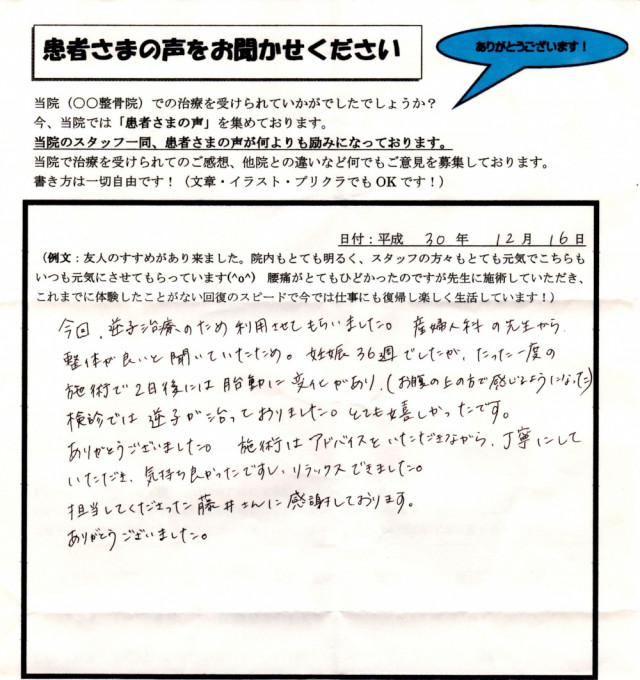 患者さまの声をお聞かせください
ありがとうございます！
当院（〇〇整骨院）での治療を受けられていかがでしたでしょうか？
今、当院では「患者さまの声」を集めております。
当院のスタッフ一同、患者さまの声が何よりも励みになっております。
当院で治療を受けられてのご感想、他院との違いなど何でもご意見を募集しております。
書き方は一切自由です！（文章・イラスト・プリクラでもOKです！）
日付：平成 30 年 12 月 16 日
（例文：友人のすすめがあり来ました。院内もとても明るく、スタッフの方々もとても元気でこちらも
いつも元気にさせてもらっています(^o^) 腰痛がとてもひどかったのですが先生に施術していただき、
これまでに体験したことがない回復のスピードで今では仕事にも復帰し楽しく生活しています！）
今回、逆子治療のため利用させてもらいました。 産婦人科の先生から
整体が良いと聞いていたため。妊娠36週でしたが、たった一度の
施術で2日後には胎動に変化があり、(お腹の上の方で感じるようになった)
検診では逆子が治っておりました。とても嬉しかったです。
ありがとうございました。 施術はアドバイスをいただきながら、丁寧にして
いただき、気持ち良かったですし、リラックスできました。
担当してくださった藤井さんに感謝しております。
ありがとうございました。